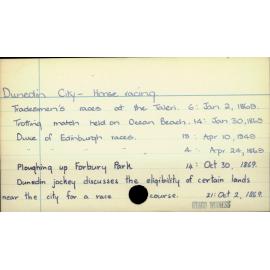 Dunedin City - Horse racing
Tradesmen's races at the Taieri. 6: Jan 2, 1869.
Trotting match held on Ocean Beach. 14: Jan 30, 1869
Duke of Edinburgh races. 13: Apr 10, 1869
" 4: Apr 24, 1869
Ploughing up Forbury Park 14: Oct 30, 1869.
Dunedin jockey discusses the eligibility of certain lands
near the city for a race course. 21: Oct 2, 1869.
OTAGO WITNESS